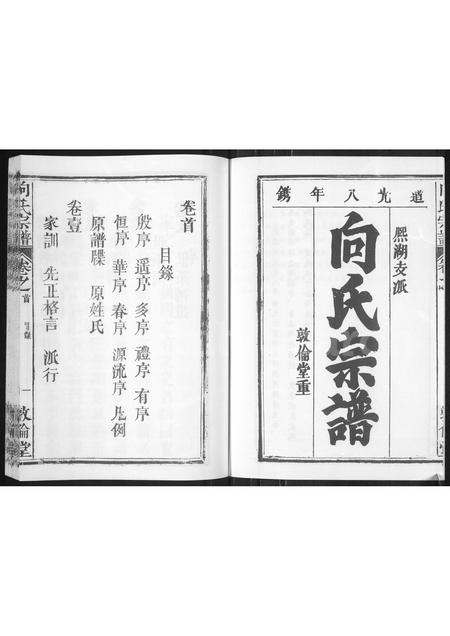 道光八年鐫
熙湖支派
向氏宗譜
敦倫堂重
卷首
目錄
殷序 遥序 多序 禮序 有序
恒序 華序 春序 源流序 凡例
原譜牒 原姓氏
卷壹
家訓 先正格言 派行
向氏宗譜 卷之首 目錄 一 敦倫堂